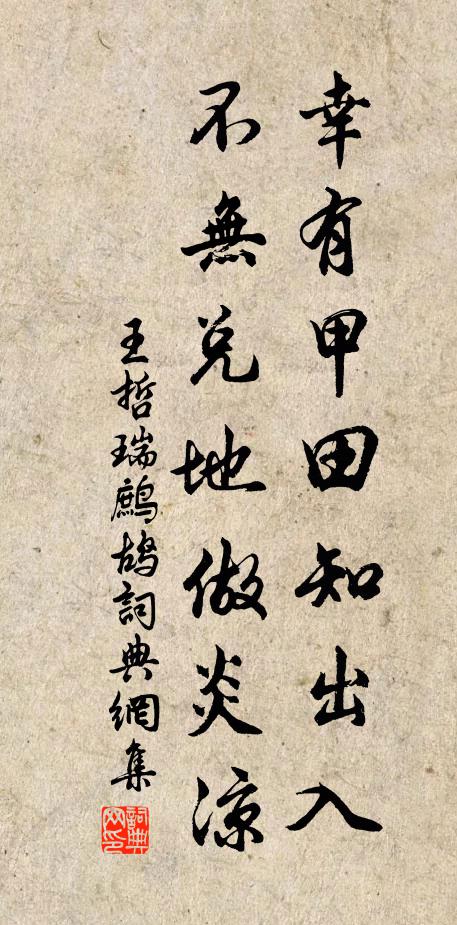 幸有甲田知出入
不無兌地做炎涼
王哲瑞鷓鴣詞典網集
詞典網印